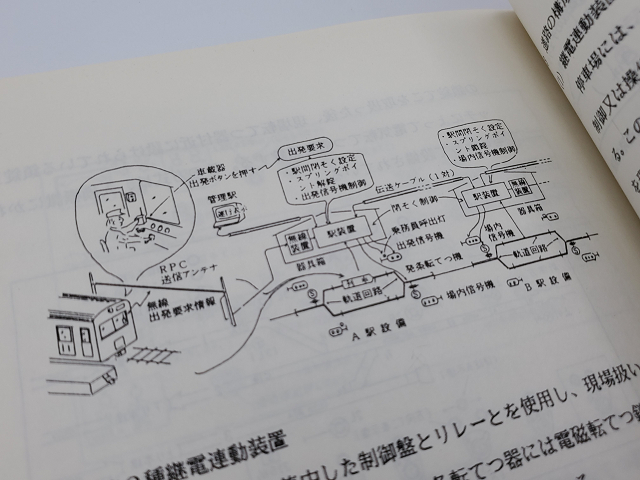 部の構成
継電連動装
停車場には、
制御又は操
る。この
車載器
出発ボタンを押す
出発要求
・駅間閉そく設定
・スプリングポイ
ント解錠
・出発信号機制御
・駅間閉そく設定
・スプリングポイ
ント鎖錠
・場内信号機制御
管理駅
伝送ケーブル(1対)
無線
装置
駅装置
器具箱
閉そく制御
乗務員呼出灯
出発信号機
駅装置
無線
装置
器具箱
場内
信号機
RPC
送信アンテナ
無線
出発要求情報
軌道回路
発条転てつ機
場内信号機
軌道回路
A駅設備
B駅設備
種継電連動装置
中した制御盤とリレーとを使用し、現場扱い
転てつ器には電磁転てつ鎖